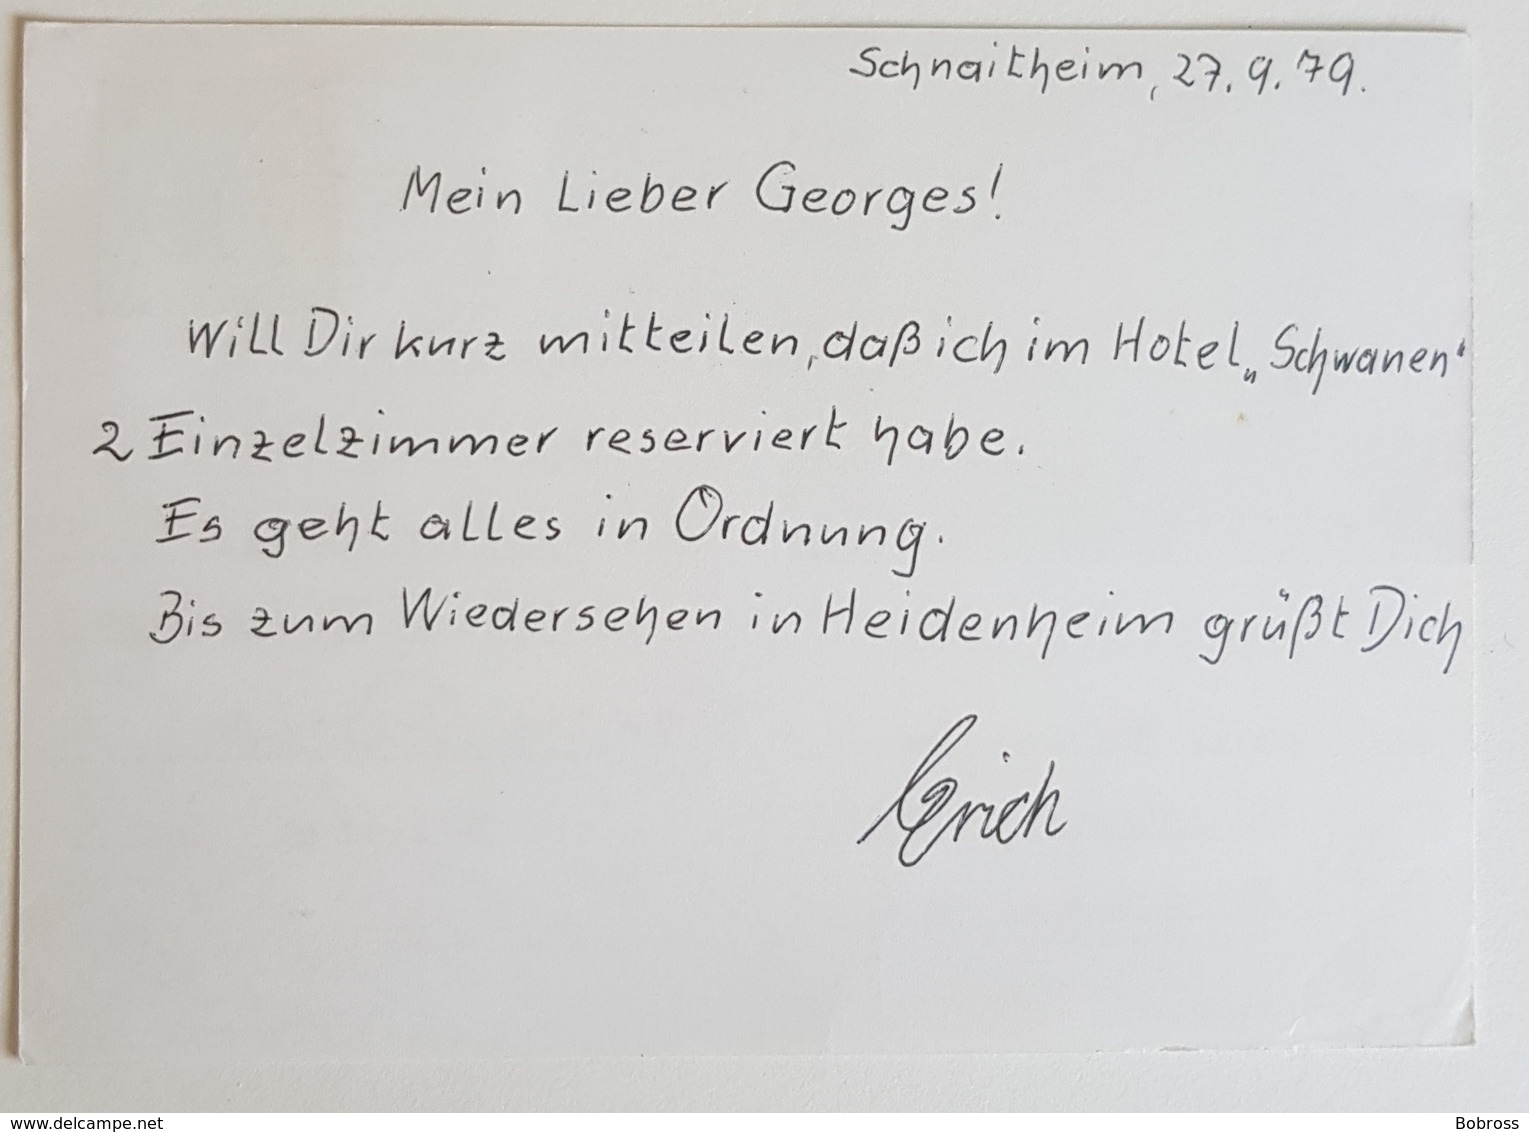 Schnaitheim, 27.9.79.
Mein Lieber Georges!
Will Dir kurz mitteilen, daß ich im Hotel „Schwanen“
2 Einzelzimmer reserviert habe.
Es geht alles in Ordnung.
Bis zum Wiedersehen in Heidenheim grüßt Dich
Erich
www.delcampe.net
Bobross